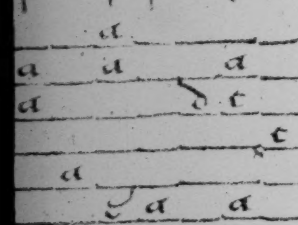 a
a a a
a δ c
c
a
e a a